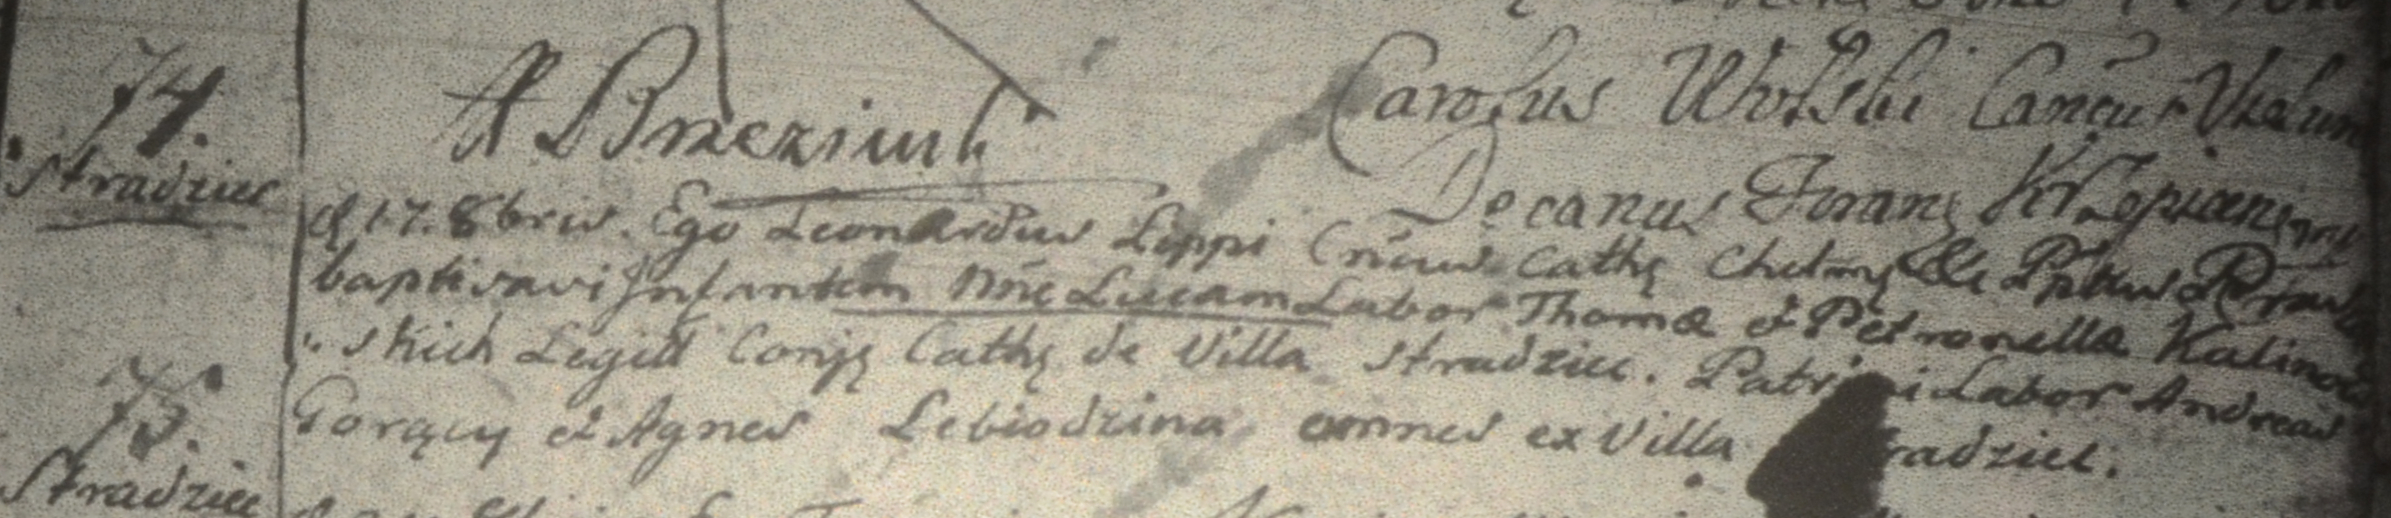 74.
Stradziec
A Brzeziński
Carolus Wolski Canonic
Decanus Foran
d 17. 8bris. Ego Leonardus Lippi Cnöus Cathę Chelmę
baptisavi Infantem nñe Lucam Labor Thomæ et Petronella Kalinow
skich Legitt Conję Cathę de Villa Stradziec. Patrini Labor Andreas
Gorący et Agnes Lebiodzina omnes ex Villa Stradziec.
75.
Stradziec